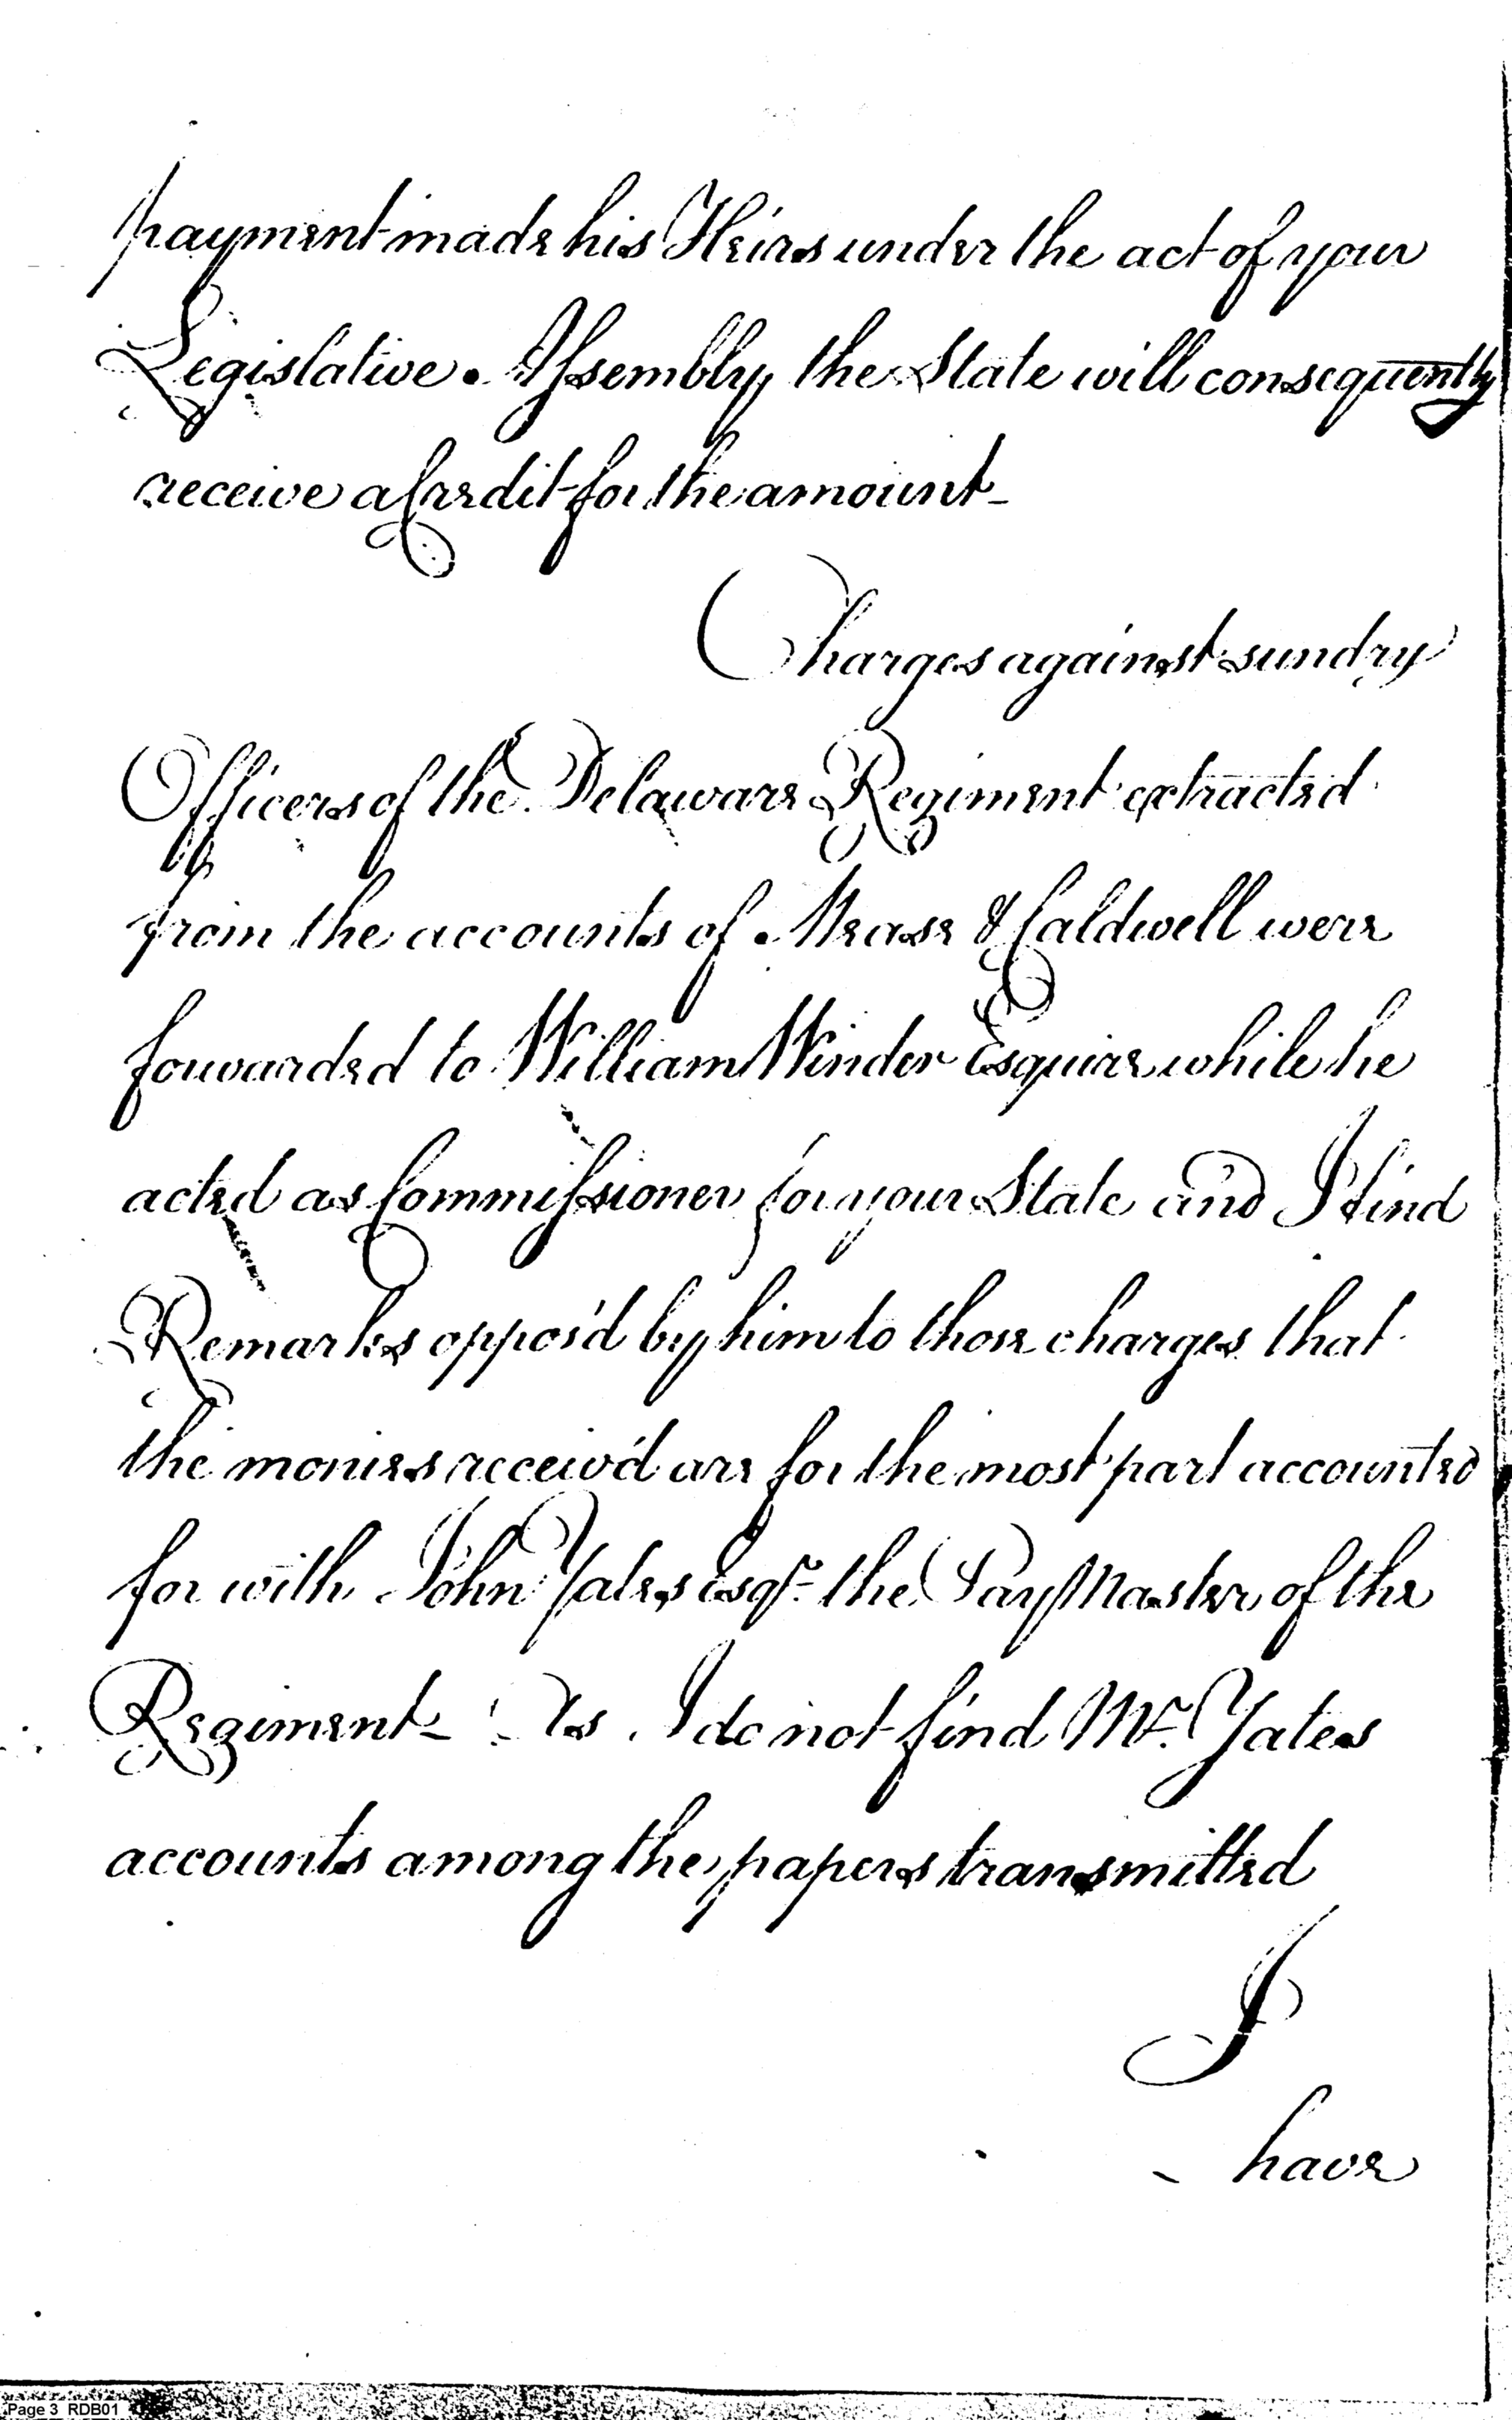 payment made his Heirs under the act of your
Legislative Assembly, the State will consequently
receive a Credit for the amount -
Charges against sundry
Officers of the Delaware Regiment extracted
from the accounts of Mease & Caldwell were
forwarded to William Winder Esquire while he
acted as Commissioner for your State and I find
Remarks oppos'd by him to those charges that
the monies receiv'd are for the most part accounted
for with John Yates Esqr. the PayMaster of the
Regiment - As I do not find Mr. Yates
accounts among the papers transmitted
I
- have
Page 3 RDB01